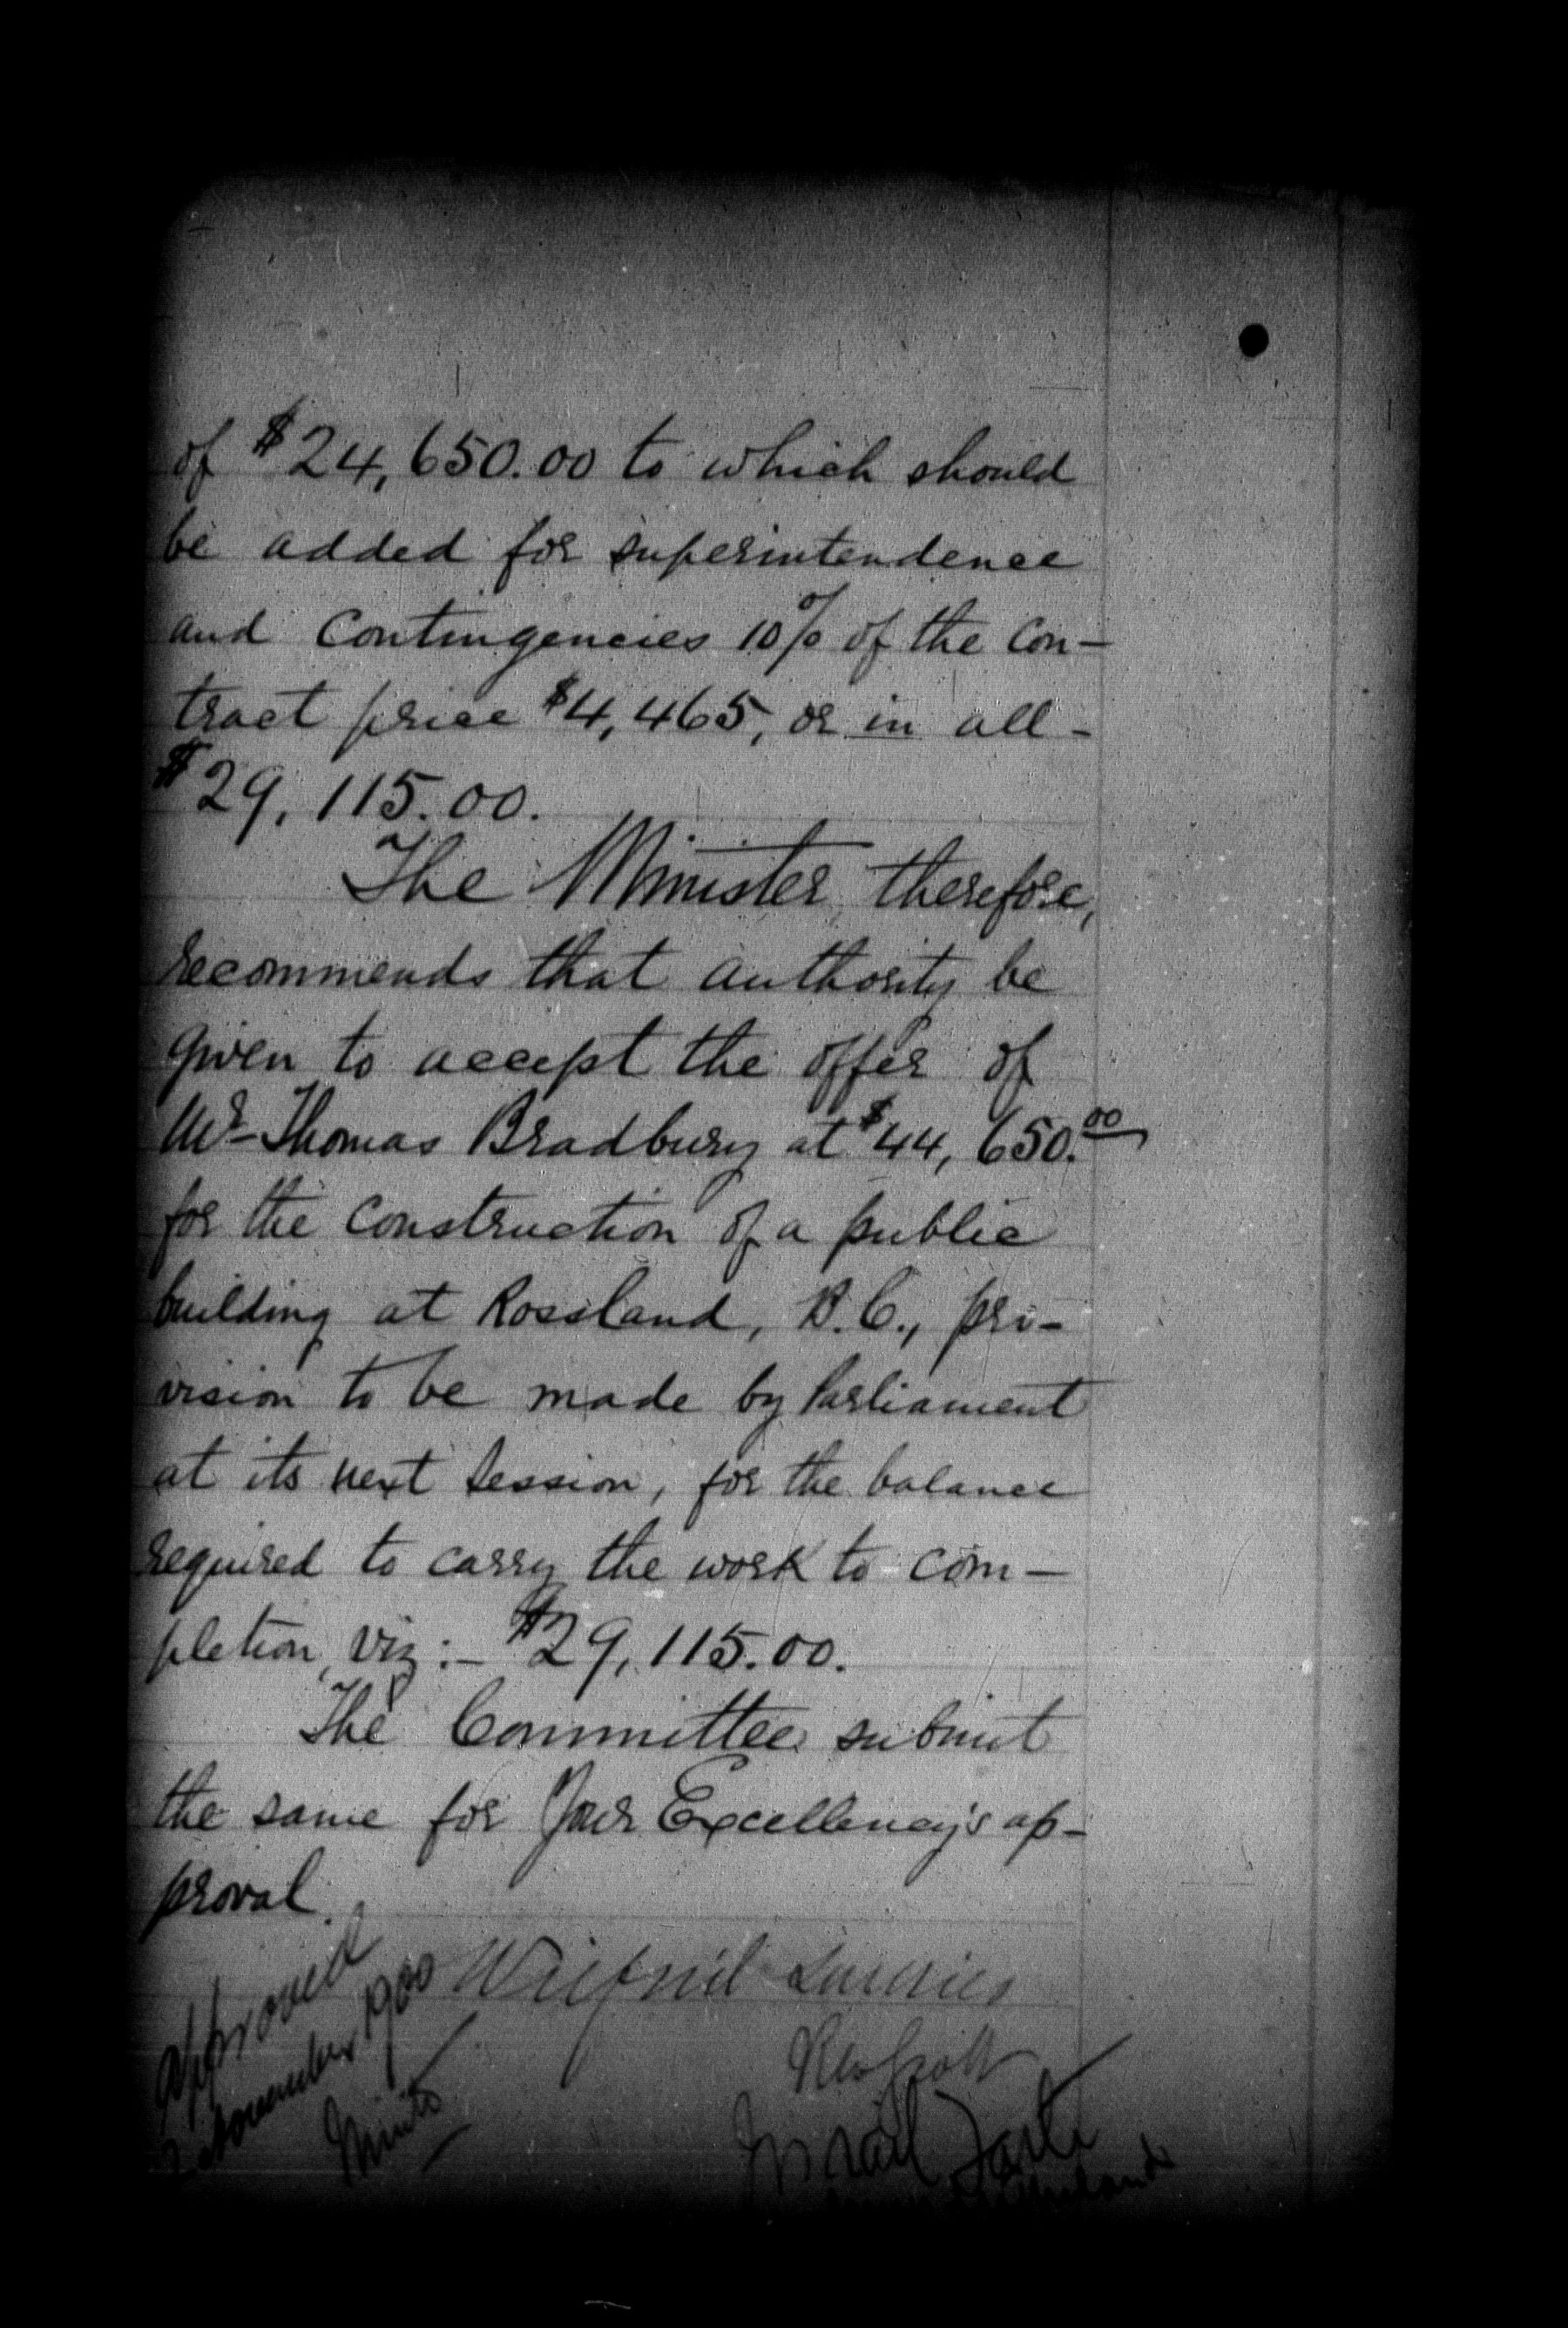 of $24,650.00 to which should
be added for superintendence
and Contingencies 10% of the Con-
tract price $4,465, or in all -
$29,115.00.
The Minister, therefore,
recommends that authority be
given to accept the offer of
Mr Thomas Bradbury at $44,650.00
for the Construction of a public
building at Rossland, B.C., pro-
vision to be made by Parliament
at its next Session, for the balance
required to carry the work to com-
pletion, viz:- $29,115.00.
The Committee submit
the same for Your Excellency's ap-
proval.
Wilfrid Laurier
Approved
November 1900
Minto
RW Scott
J Israel Tarte